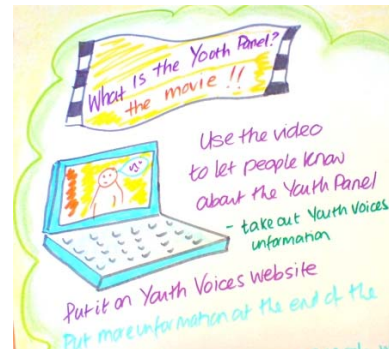 What Is the Youth Panel?
the movie !!
Use the video
to let people know
about the Youth Panel
- take out Youth Voices
information
Put it on Youth Voices website
Put more information at the end of the